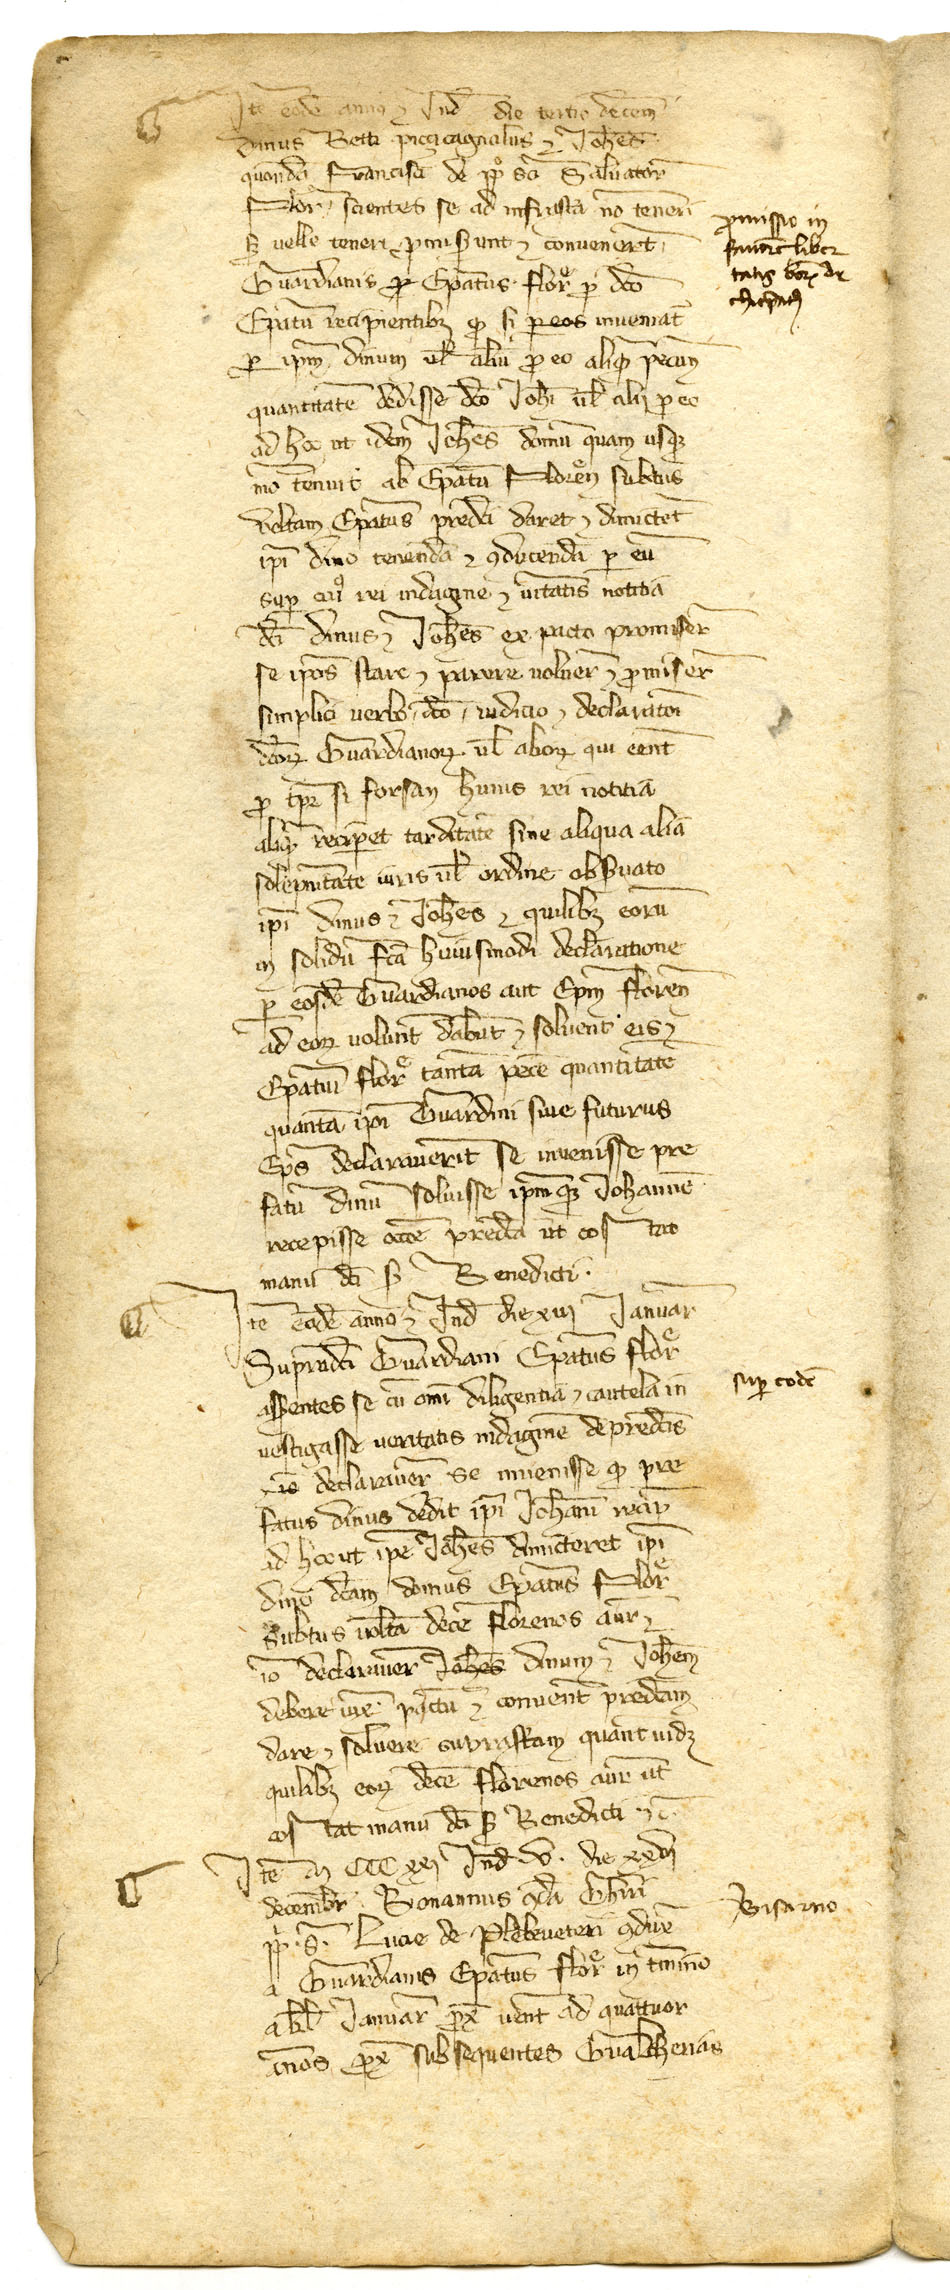 Ite eode anno ⁊ Ind die tertio decem
Dinus Betti piçicagnolus ⁊ Johes
quonda Francisci de ppo sci Saluator
Flor, scientes se ad infrasta no teneri
sz uelle teneri, pmiserunt ⁊ conuenerēt,
Guardianis pro Epatus flor p dco
Epatu recipientibz q si per eos inueniat
p ipm dinum ul aliu p eo aliqm pecun
quantitate dedisse dco Johi ul alij p eo
ad hoc ut idem Johes domu quam usqz
mo tenuit ab Epatu Floren subtus
uoltam Epatus predci daret ⁊ dimictet
ipi dino tenenda ⁊ 9ducenda p eu
sup cui9 rei indagine ⁊ uitatis notitia
dci dinus ⁊ Johes ex pacto promiser
se ipos stare ⁊ parere uoluer ⁊ pmiser
simplici uerbo, dco, iudicio ⁊ declaratoi
dcor Guardianor ul alior qui eent
p tpr si forsan huius rei notitia
aliqm reciperet tarditate sine aliqua alia
solepnitate iuris ul ordine obseruato
ipi dinus ⁊ Johes ⁊ quilibz eoru
in solidu fca huiusmodi declaratione
p eosde Guardianos aut Epm floren
ad eor uolunt dabunt ⁊ soluent eis ⁊
Epatui flor tanta pece quantitate
quanta ipi Guardini siue futurus
Eps declarauerit se inuenisse pre
fatu dinu soluisse ipmqz Johanne
recepisse occoe predca ut cos tat
manu dci s Benedicti.
Ite eode anno ⁊ Ind die xiij Januar
Supradci Guardiani Epatus flor
asserentes se cu omi diligentia ⁊ cautela in
uestigasse ueritatis indagine de predcis
declarauer se inuenisse q pre
fatus dinus dedit ipi Johani recip
ad hoc ut ipe Johes dimicteret ipi
dino dcam domus Epatus Flor
subtus uolta dece florenos aur ⁊
io declarauer Johes dinum ⁊ Johem
debere iuxe pactu ⁊ conuent predcam
dare ⁊ soluere suprastam quant uidz
quilibz eor dece florenos aur ut
cos tat manu dci s Benedicti ⁊c.
Ite M CCC xxj Ind. V. die xxvj
decembr. Bonannus qda Gherii
pp. S. Lucie de Plebeueteri 9duxe
a Guardianis Epatus flor in tmino
a kl Januar prox uent ad quattuor
annos prox subsequentes Gualcherias
promissio in
fauore liber
tatis bor de
sup eode
Bisarno